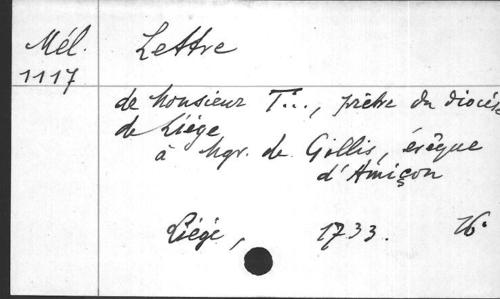 Mél. Lettre
1117
de Monsieur T..., prêtre du diocèse
de Liége
à Mgr. de Gillis, évêque
d'Amiçon
Liége, 1733. 16°